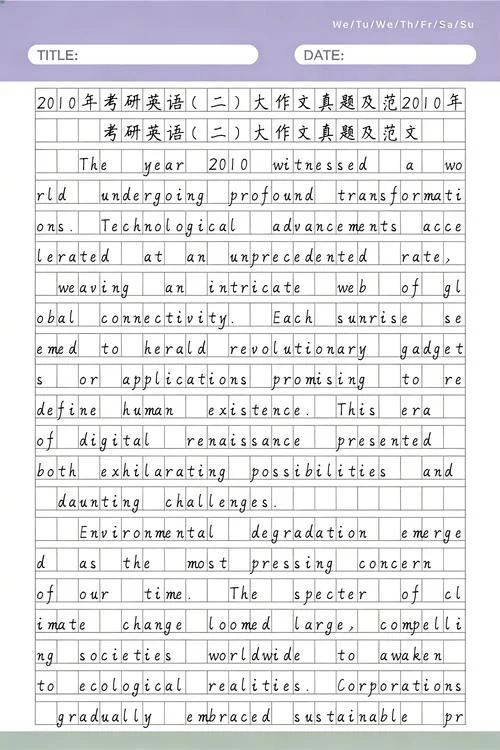 We/Tu/We/Th/Fr/Sa/Su
TITLE: DATE:
2010年考研英语(二)大作文真题及范2010年
考研英语(二)大作文真题及范文
The year 2010 witnessed a wo
rld undergoing profound transformati
ons. Technological advancements acce
lerated at an unprecedented rate,
weaving an intricate web of gl
obal connectivity. Each sunrise se
emed to herald revolutionary gadget
s or applications promising to re
define human existence. This era
of digital renaissance presented
both exhilarating possibilities and
daunting challenges.
Environmental degradation emerge
d as the most pressing concern
of our time. The specter of cl
imate change loomed large, compelli
ng societies worldwide to awaken
to ecological realities. Corporations
gradually embraced sustainable pr